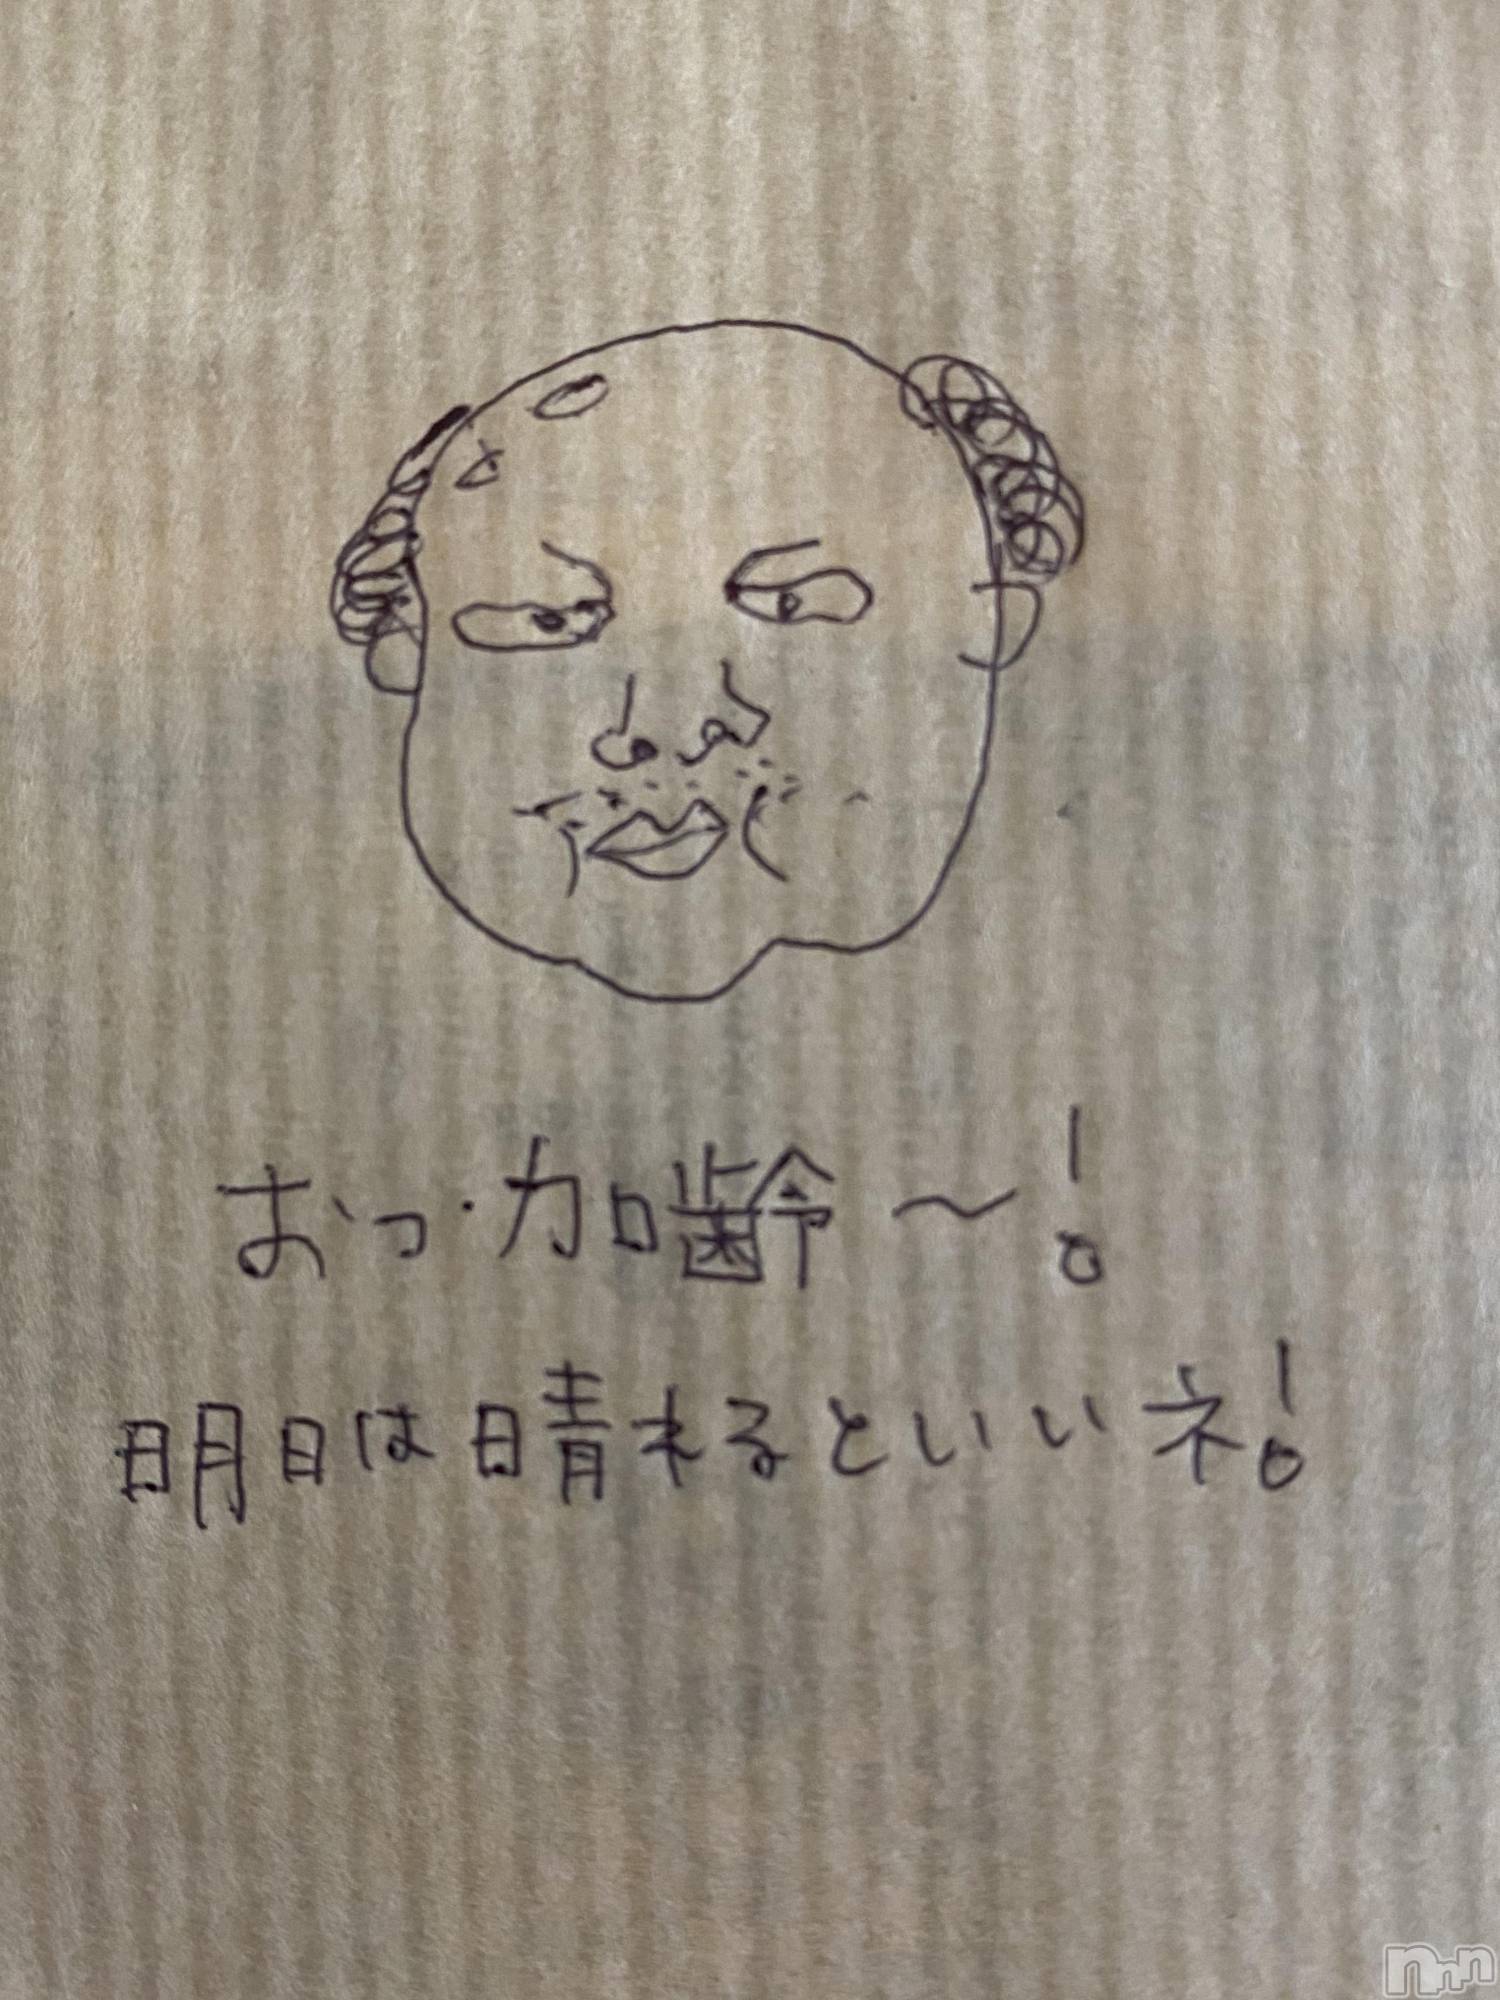 おっ・加齢〜!
明日は晴れるといいネ!
nnn